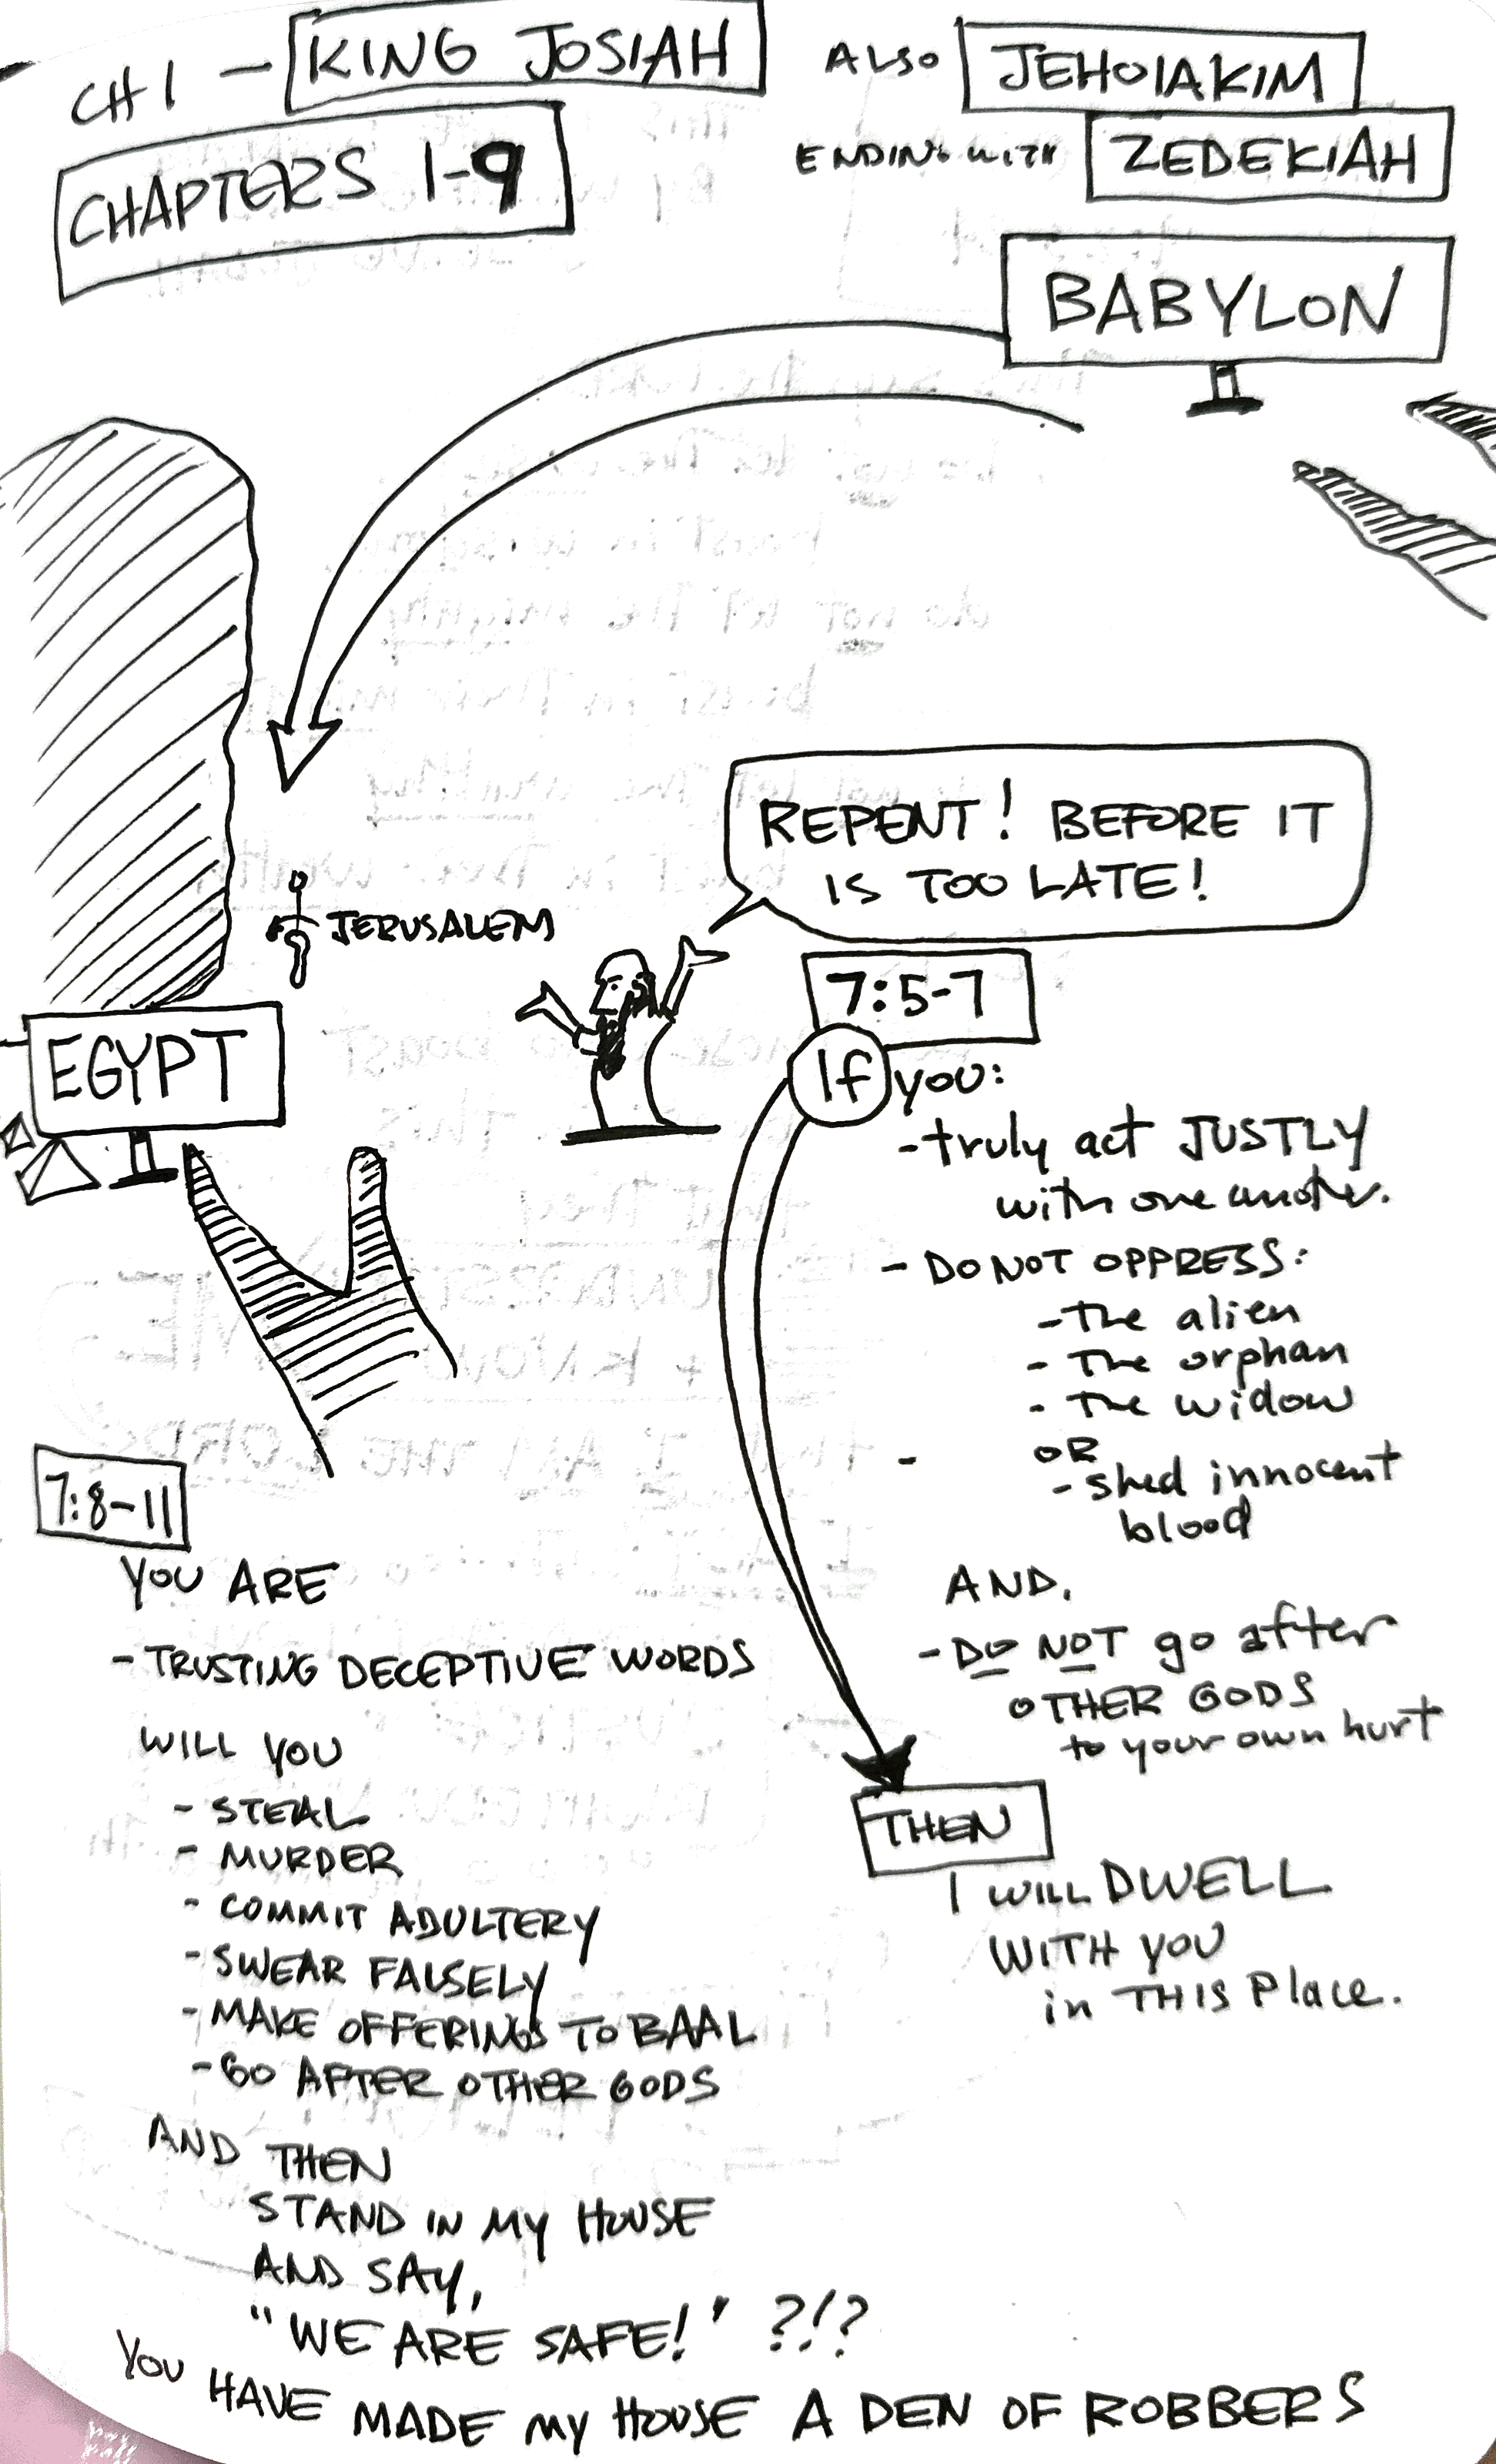 CH 1 - KING JOSIAH
ALSO JEHOIAKIM
CHAPTERS 1-9
ENDING WITH ZEDEKIAH
BABYLON
REPENT! BEFORE IT
IS TOO LATE!
JERUSALEM
EGYPT
7:5-7
If you:
-truly act JUSTLY
with one another.
- DO NOT OPPRESS:
- The alien
- The orphan
- The widow
- OR
- shed innocent
blood
AND,
- DO NOT go after
OTHER GODS
to your own hurt
THEN
I WILL DWELL
WITH YOU
in THIS Place.
7:8-11
YOU ARE
- TRUSTING DECEPTIVE WORDS
WILL YOU
- STEAL
- MURDER
- COMMIT ADULTERY
- SWEAR FALSELY
- MAKE OFFERINGS TO BAAL
- GO AFTER OTHER GODS
AND THEN
STAND IN MY HOUSE
AND SAY,
"WE ARE SAFE!" ?!?
YOU HAVE MADE MY HOUSE A DEN OF ROBBERS